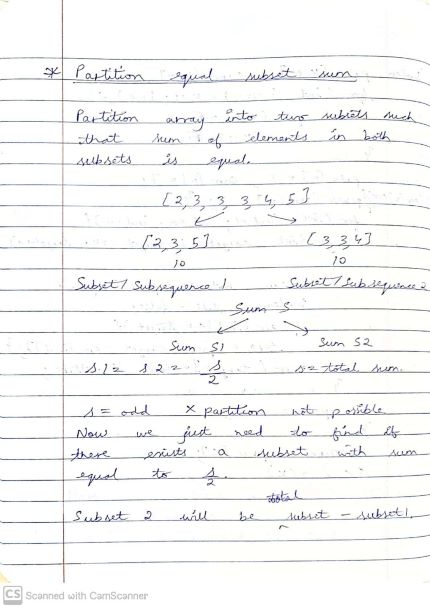 * Partition equal subset sum
Partition array into two subsets such
that sum of elements in both
subsets is equal.
[2, 3, 3, 3, 4, 5]
[2, 3, 5] [3, 3, 4]
10 10
Subset/Subsequence 1 Subset/Subsequence 2
Sum S
Sum S1 Sum S2
s1 = s2 = s/2 s = total sum.
s = odd × partition not possible
Now we just need to find if
there exists a subset with sum
equal to s/2.
total
Subset 2 will be ^ subset - subset 1.
CS Scanned with CamScanner